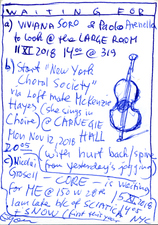 WAITING FOR
a) VIVIANA SORO & Paolo Arenella
to look @ the LARGE ROOM
11 XI 2018 1400 @ 319
b) Start "New York
Choral Society"
via Loft mate McKenzie
Hayes (she sings in
Choire) @ CARNEGIE
Mon Nov 12, 2018 HALL
2005
Wife hurt back/spine
c) Nicolai from yesterday's jogging
Grosell — CORE — is waiting
for ME @ 150 W 28th 15 XI 2018
I am late b/c of SCIATICA NYC
+ SNOW (first this year